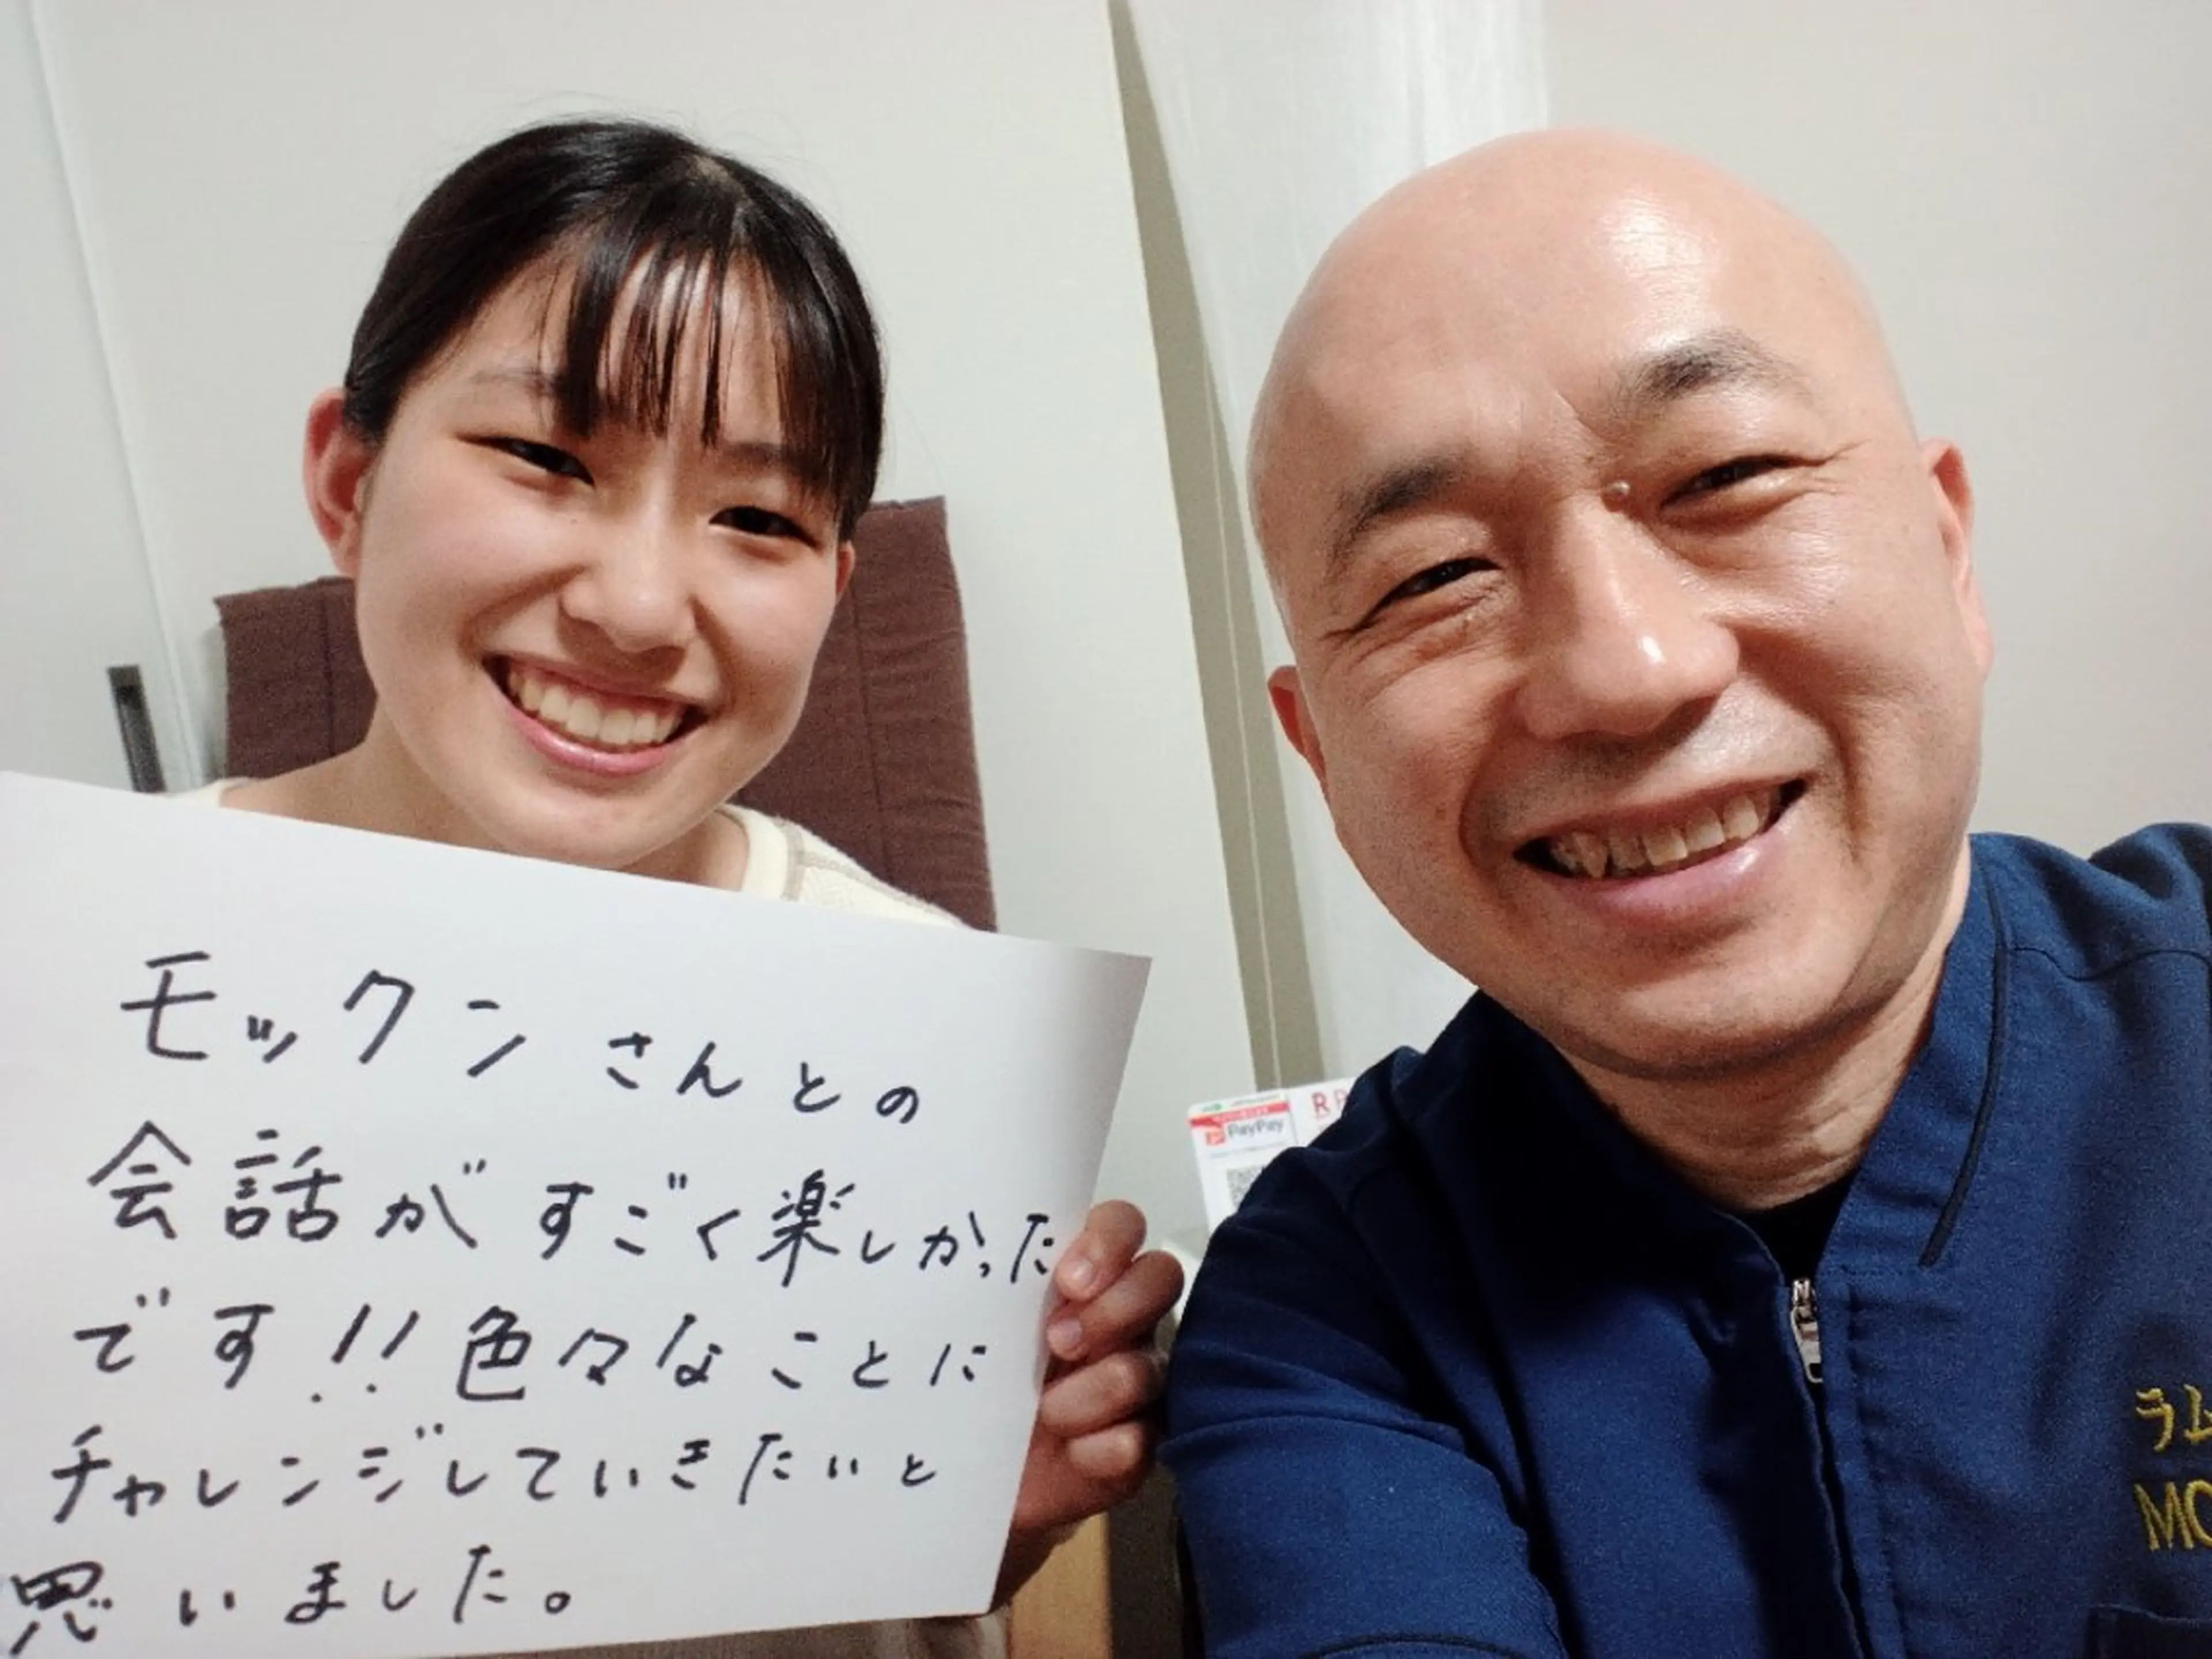 モックンさんとの
会話がすごく楽しかった
です!!色々なことに
チャレンジしていきたいと
思いました。
PayPay
R
ラム
MO